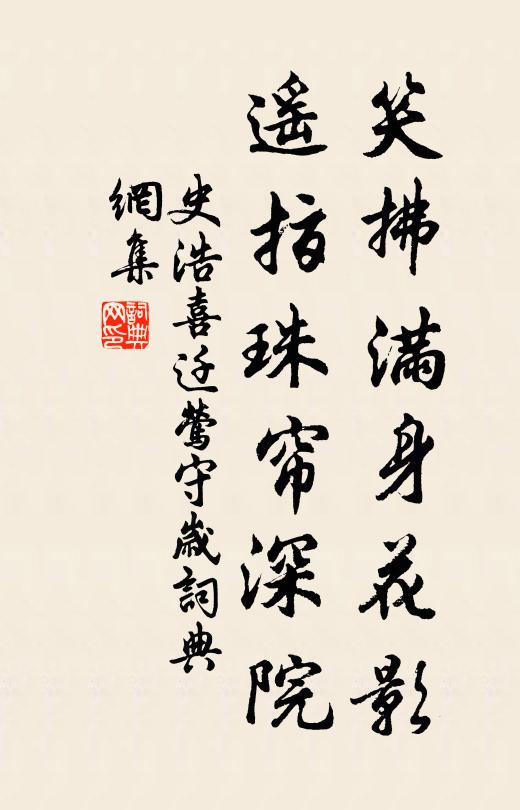 笑拂滿身花影
遥指珠帘深院
史浩喜迁鶯守歲詞典
網集
詞典网印